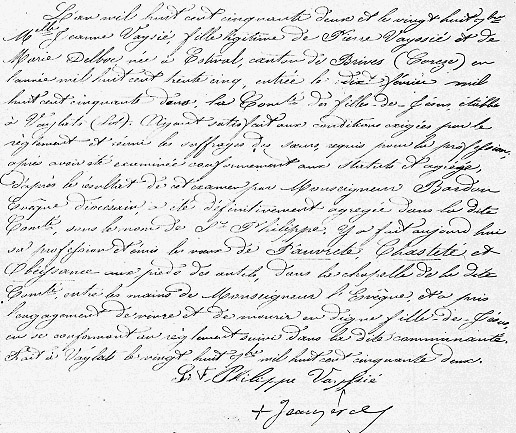 L'an mil huit cent cinquante deux et le vingt huit 9bre
Melle Jeanne Vayssié fille légitime de Pierre Vayssié et de
Marie Delbos née à Estival, canton de Brives (Corèze) en
l'année mil huit cent trente cinq, entrée le dix février mil
huit cent cinquante dans la Comté des filles de Jésus établie
à Vaylats (Lot); Ayant satisfait aux conditions exigées par le
règlement et réuni les suffrages des sœurs, requis pour la profession,
après avoir été examinée conformément aux statuts et agrégée
d'après le résultat de cet examen par Monseigneur Bardou
Evêque diocésain a été définitivement agrégée dans la dite
Comté, sous le nom de Sr Philippe, y a fait aujourd'hui
sa profession et émis les vœux de Pauvreté, Chasteté et
Obéissance aux pieds des autels, dans la chapelle de la dite
Comté, entre les mains de Monseigneur l'Evêque, et a pris
l'engagement de vivre et de mourir en digne fille de Jésus,
en se conformant au règlement suivi dans la dite communauté.
Fait à Vaylats le vingt huit 9bre mil huit cent cinquante deux.
Sr Philippe Vayssié
+ Jean